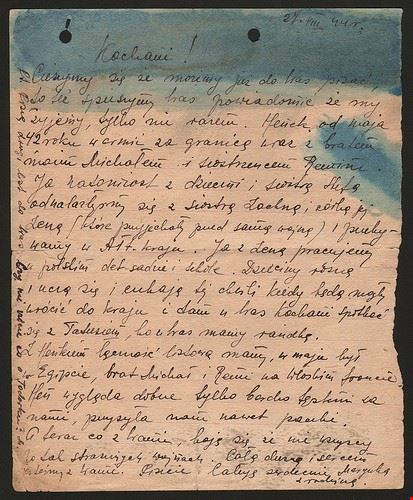 27. VIII 44 r.
Kochani!
Cieszymy się że możemy już do Was pisać,
to też spieszymy Was powiadomić że my
żyjemy, tylko nie razem. Heniek od maja
42 roku w armii za granicą wraz z bratem
moim Michałem i siostrzeńcem Remim.
Ja natomiast z dziećmi i siostrą
odnalazłyśmy się z siostrą i córką jej
Żenią (które przyjechały przed samą wojną) i przeby-
wamy w Ałt. Kraju. Ja z Żenią pracujemy
w polskim det. sadzie i szkole. Dzieciny rosną
i uczą się i czekają tej chwili kiedy będą mogły
wrócić do kraju i tam u Was Kochani spotkać
się z Tatusiem, bo u Was mamy randkę.
Z Heńkiem łączność listową mamy, w maju był
w Egipcie, brat Michał i Remi na Włoskim froncie.
Heń wygląda dobrze tylko bardzo tęskni za
nami, przysyła nam nawet paczki.
A teraz co z Wami, boję się że nie wszyscy
po tak strasznych wojnach. Całą duszą i sercem
jesteśmy z Wami. Piszcie. Całuję serdecznie
z rodziną.